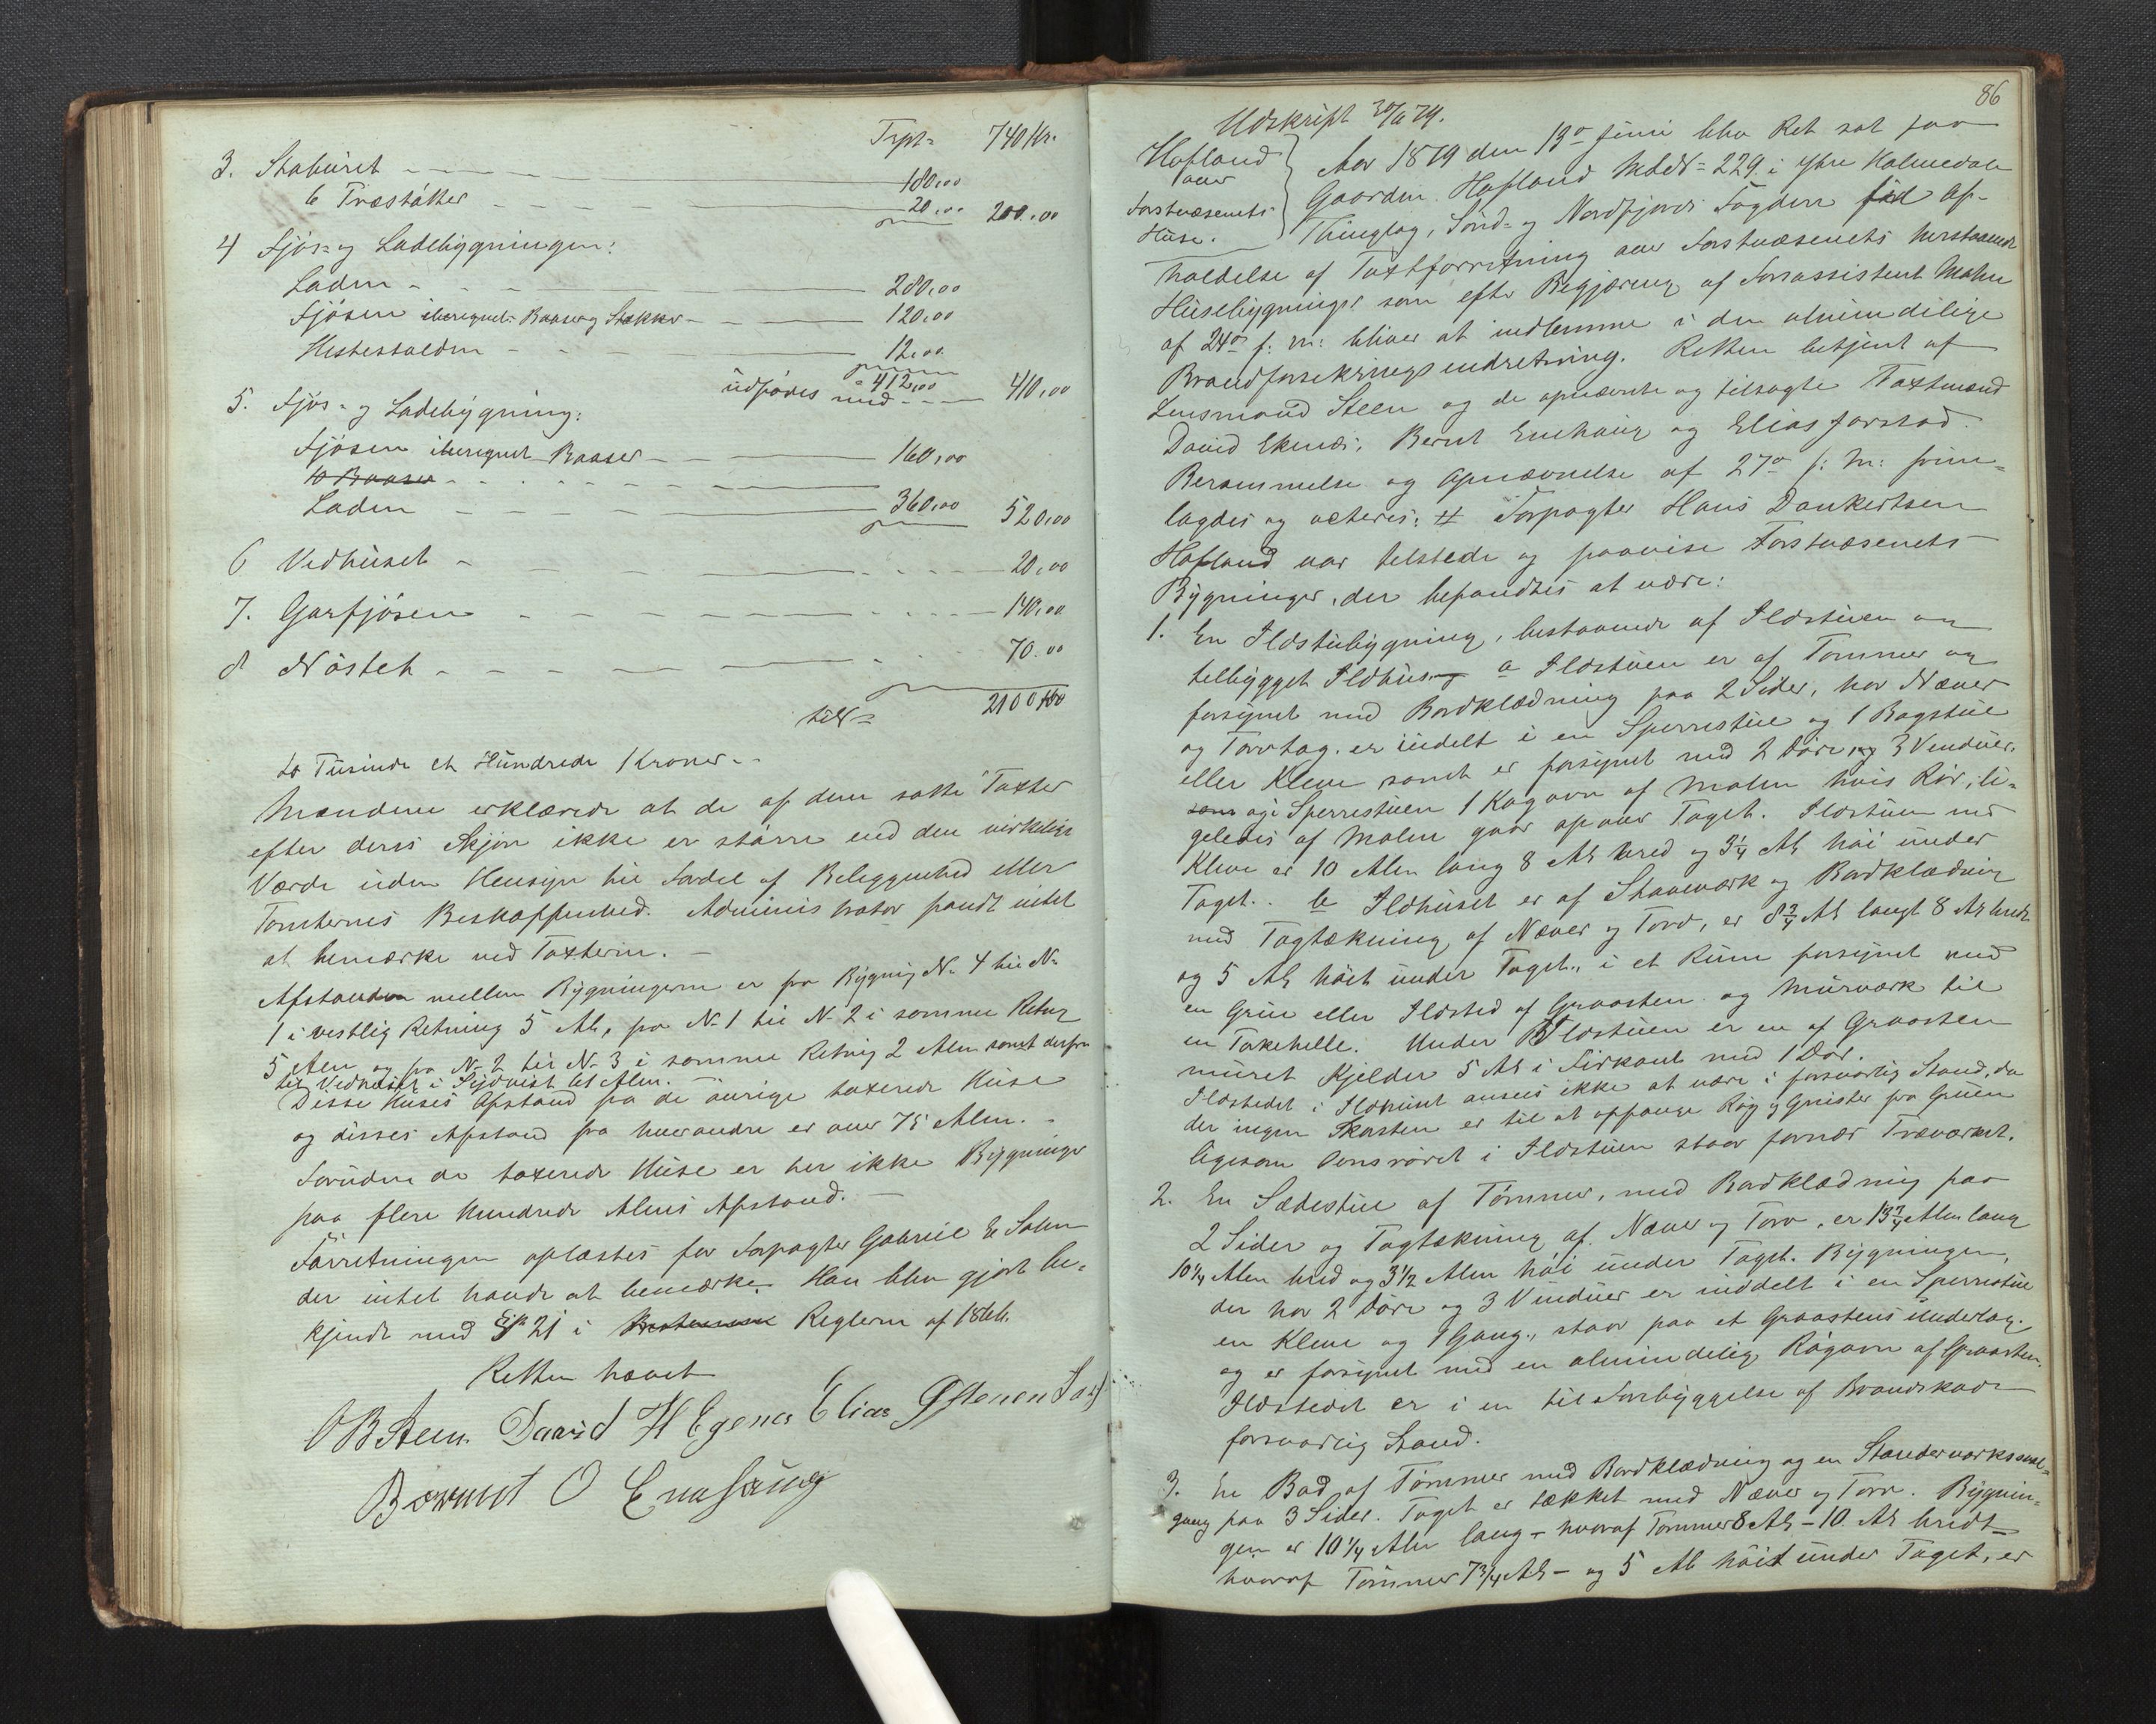 Trpt= 740 Kr.
3. Staburet 180,00
6 Træstøtter 20,00 200,00
4 Fjøs- og Ladebygningen:
Laden 280,00
Fjøsen iberegnet Baase og Stakker 120,00
Hestestalden 12,00
udføres med 412,00 410,00
5. Fjøs- og Ladebygning:
Fjøsen iberegnet Baaser 160,00
10 Baaser
Laden 360,00 520,00
6 Vedhuset 20,00
7. Garfjøsen 140,00
8 Nøstet 70,00
2100,00
to Tusinde et Hundrede Kroner.
Mændene erklærede at de af dem satte Taxter
efter deres Skjøn ikke er større end den virkelige
Værdi uden Hensyn til Fordel af Beliggenhed eller
Tomternes Beskaffenhed. Administrator fandt intet
at bemærke ved Taxterne.
Afstanden mellem Bygningerne er fra Bygning No 4 til No
1 i vestlig Retning 5 Al., fra No 1 til No 2 i samme Retng
5 Alen og fra No 2 til No 3 i samme Retnig 2 Alen samt derfra
til Vedhuset i Sydvest Alen.
Disse Huses Afstand fra de øvrige taxerede Huse
og disses Afstand fra hverandre er over 75 Alen.
Foruden de taxerede Huse er her ikke Bygninger
paa flere hundrede Alens Afstand.
Forretningen oplæstes for Forpagter Gabriel E Solem
der intet havde at bemærke. Han blev gjort be-
kjendt med § 21 i Reglerne af 1866.
Retten hævet
OB Steen David H Egenes Elias Østenen
Bernnt O Enehaug
86
Udskrift 30/6 79.
Hofland
over
Forstvæsenets
Huse.
Aar 1879 den 13de Juni blev Ret sat paa
Gaarden Hofland Matr No 229 i Ytre Holmedals
Thinglag, Sønd- og Nordfjords Fogderi til Af-
holdelse af Taxtforretning over Forstvæsenets herstaaende
Husebygninger som efter Begjæring af Forstassistent Malm
af 24de f: M: bliver at indlemme i den almindelige
Brandforsikringsindretning. Retten betjent af
Lensmand Steen og de opnævnte og tilsagte Taxtmænd
David Ekenæs, Bernt Enehaug og Elias Jarstad.
Berammelse og Opnævnelse af 27de f: M: frem-
lagdes og acteres: # Forpagter Hans Dankertsen
Hofland var tilstede og paaviste Forstvæsenets
Bygninger, der befandtes at være:
1. En Ildstubygning, bestaaende af Ildstuen og
tilbygget Ildhus. a Ildstuen er af Tømmer og
forsynet med Bordklædning paa 2 Sider, har Næver
og Torvtag, er inddelt i en Sperrestue og 1 Bagstue
eller Kleve samt er forsynet med 2 Døre og 3 Vinduer,
og i Sperrestuen 1 Kogovn af Malm hvis Rør, li-
geledes af Malm gaar op over Taget. Ildstuen med
Kleve er 10 Alen lang 8 Al. bred og 3¼ Al. høi under
Taget. b Ildhuset er af Stavværk og Bordklædning
med Tagtækning af Næver og Torv, er 8¾ Al. langt 8 Al. bredt
og 5 Al. høit under Taget, i et Rum forsynet med
en Grue eller Ildsted af Graasten og Murværk til
en Takehelle. Under Ildstuen er en af Graasten
muret Kjelder 5 Al. i Firkant med 1 Dør.
Ildstedet i Ildhuset ansees ikke at være i forsvarlig Stand, da
der ingen Skorsten er til at opfange Røg og Gnister fra Gruen
ligesom Ovnsrøret i Ildstuen staar fornær Træværket.
2. En Sædestue af Tømmer, med Bordklædning paa
2 Sider og Tagtækning af Næver og Torv, er 13¾ Alen lang
10¼ Alen bred og 3½ Alen høi under Taget. Bygningen,
der har 2 Døre og 3 Vinduer er inddelt i en Sperrestue
en Kleve og 1 Gang, staar paa et Graastens Underlag
og er forsynet med en almindelig Røgovn af Graasten.
Ildstedet er i en til Forebyggelse af Brandskade
forsvarlig Stand.
3. En Bod af Tømmer med Bordklædning og en Standerværkssval-
gang paa 3 Sider. Taget er tækket med Næver og Torv. Bygnin-
gen er 10¼ Alen lang - hvoraf Tømmer 8 Al. - 10 Al. bredt -
hvoraf Tømmer 7¾ Al. - og 5 Al. høit under Taget, er